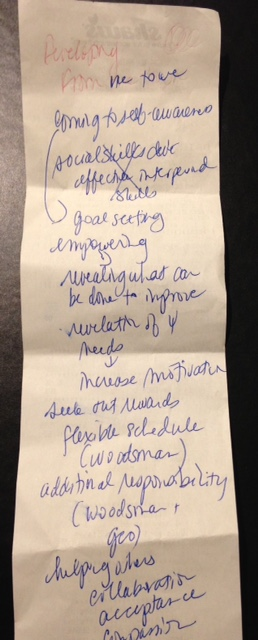 Developing
From me to we
coming to self-awareness
social skills devt
effective interpersonal
skills
goal setting
empowering
revealing what can
be done to improve
revelation of ψ
needs
increase motivation
seek out rewards
flexible schedule
(woodsman)
additional responsibility
(woodsman +
geo)
helping others
collaboration
acceptance
compassion